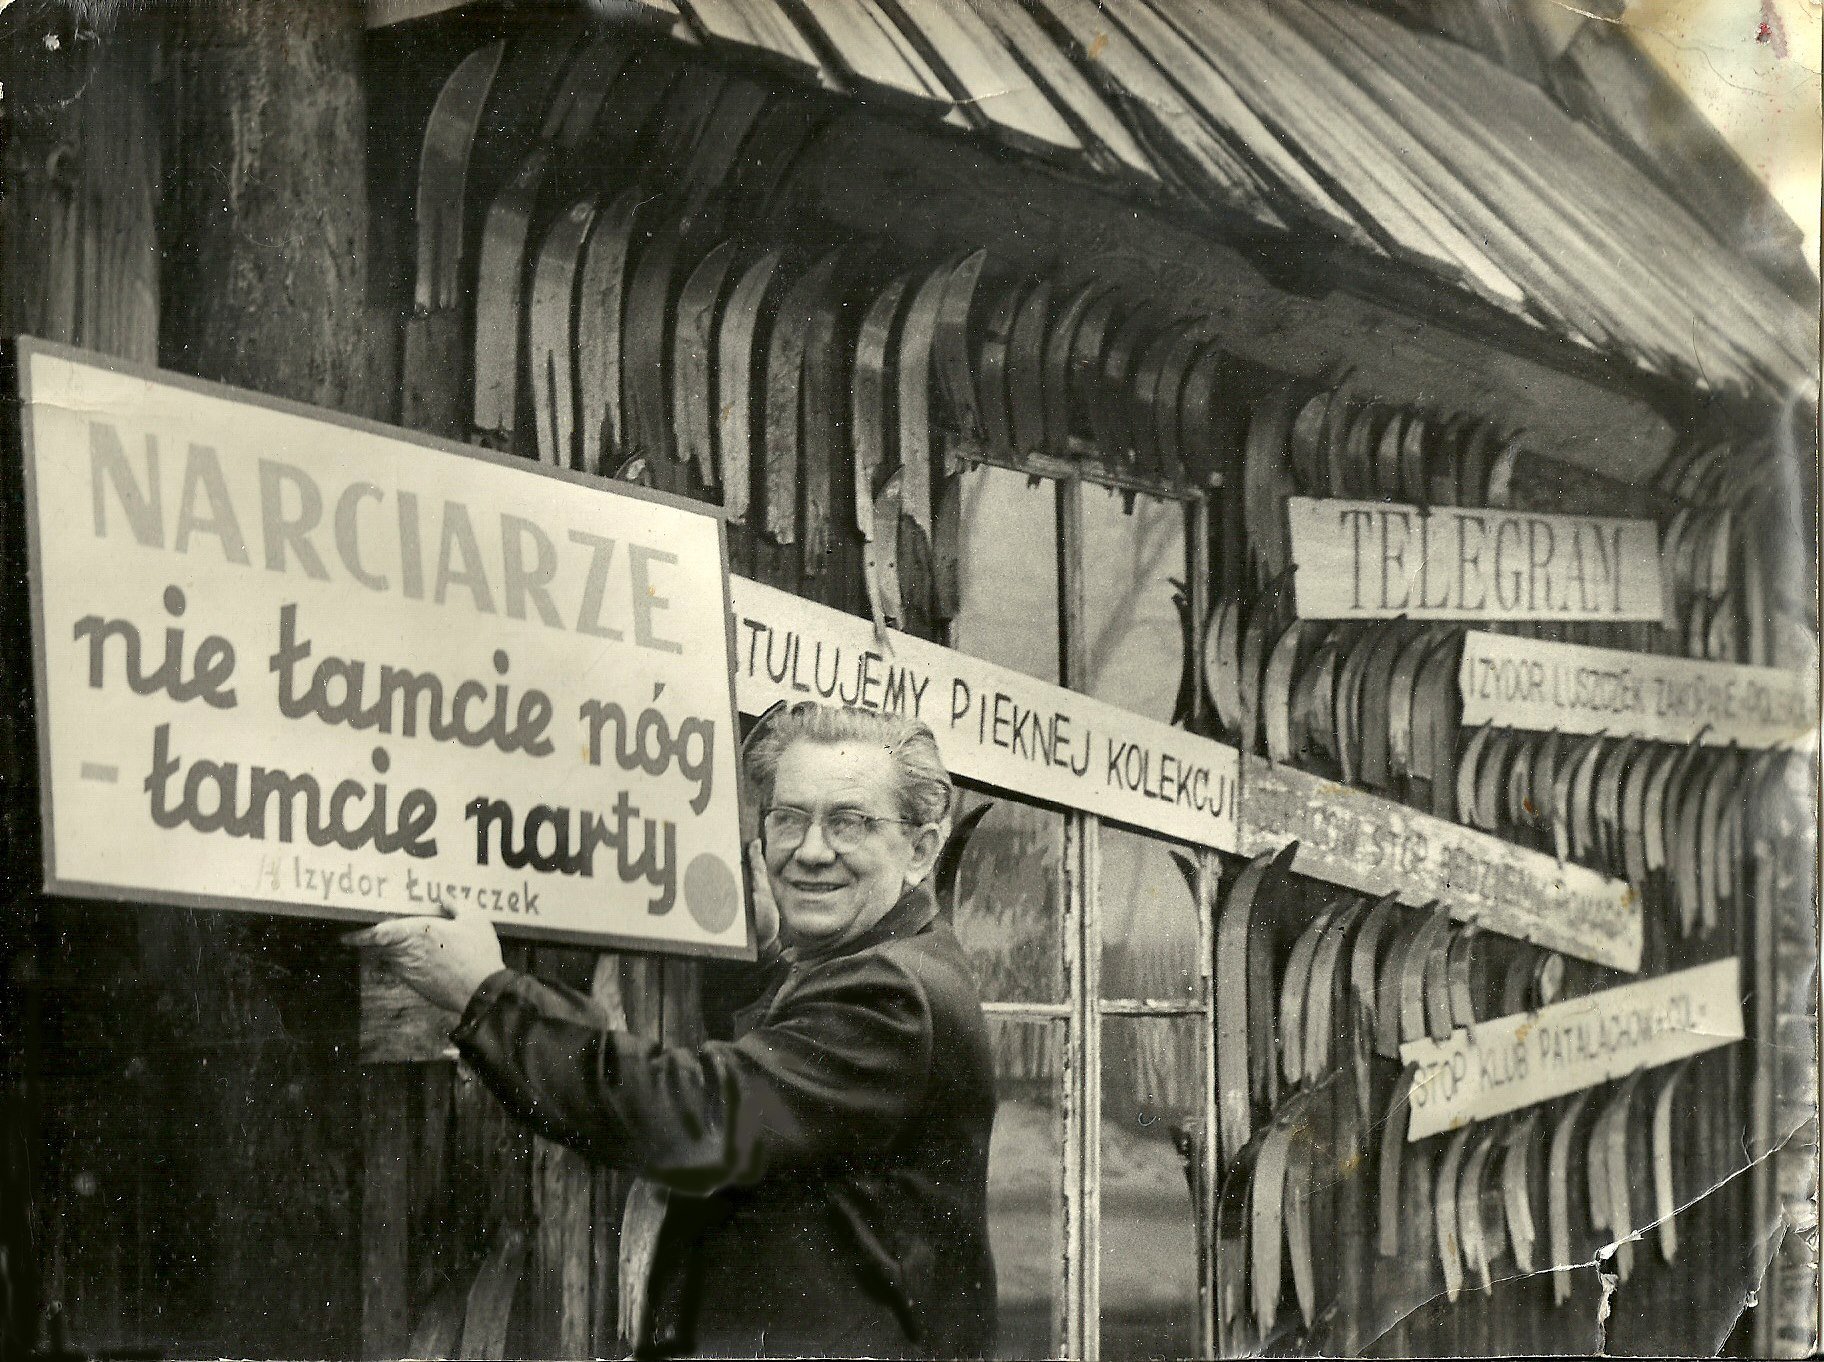 NARCIARZE
nie łamcie nóg
- łamcie narty.
Izydor Łuszczek
TULUJEMY PIEKNEJ KOLEKCJI
STOP
TELEGRAM
IZYDOR LUSZCZEK ZAKOPANE
STOP KLUB PATALACHOW